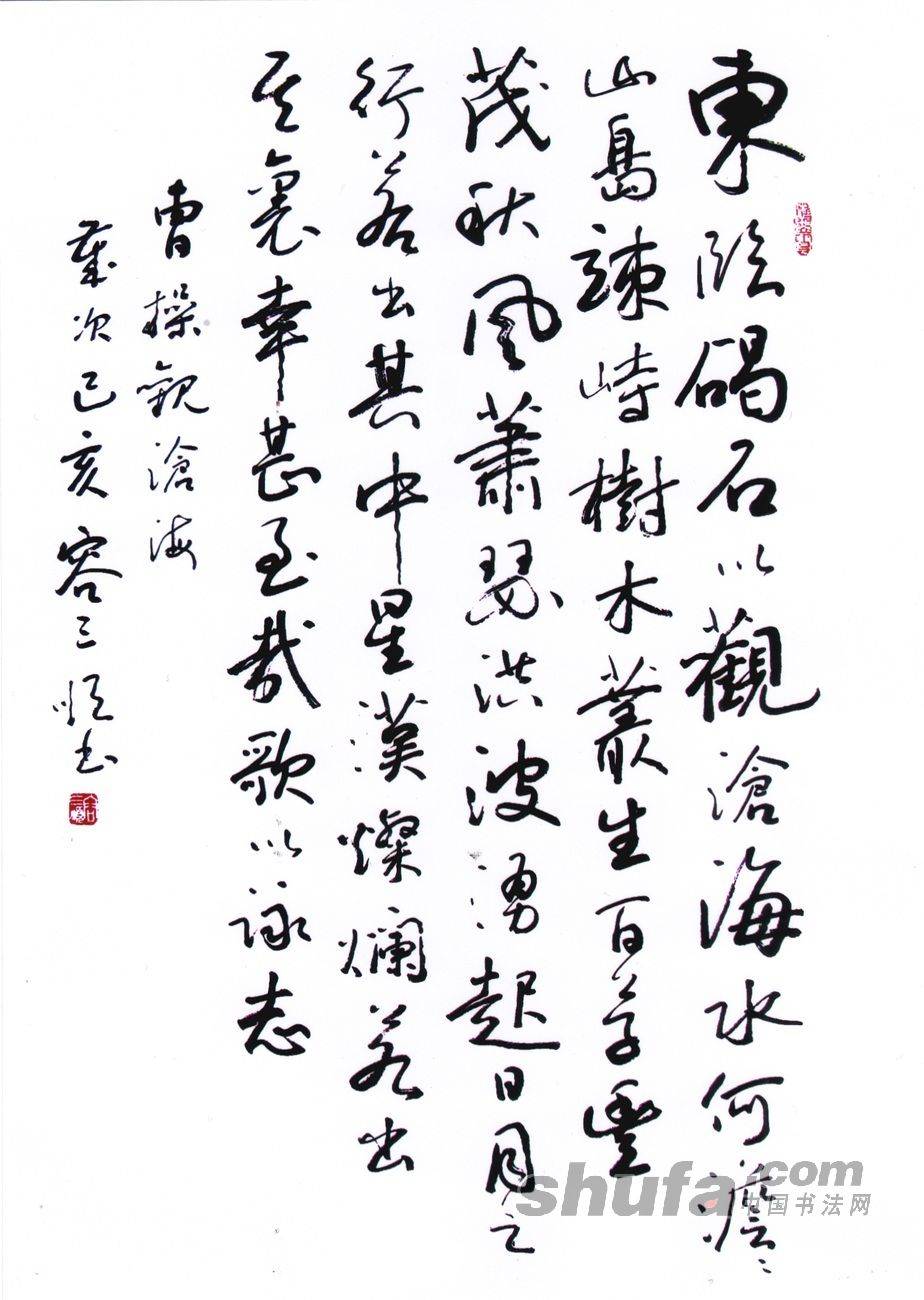 東臨碣石以觀滄海水何澹〻
山島竦峙樹木叢生百草豐
茂秋風蕭瑟洪波湧起日月之
行若出其中星漢燦爛若出
其裏幸甚至哉歌以詠志
曹操觀滄海
歲次己亥容三書
shufa.com
中国书法网